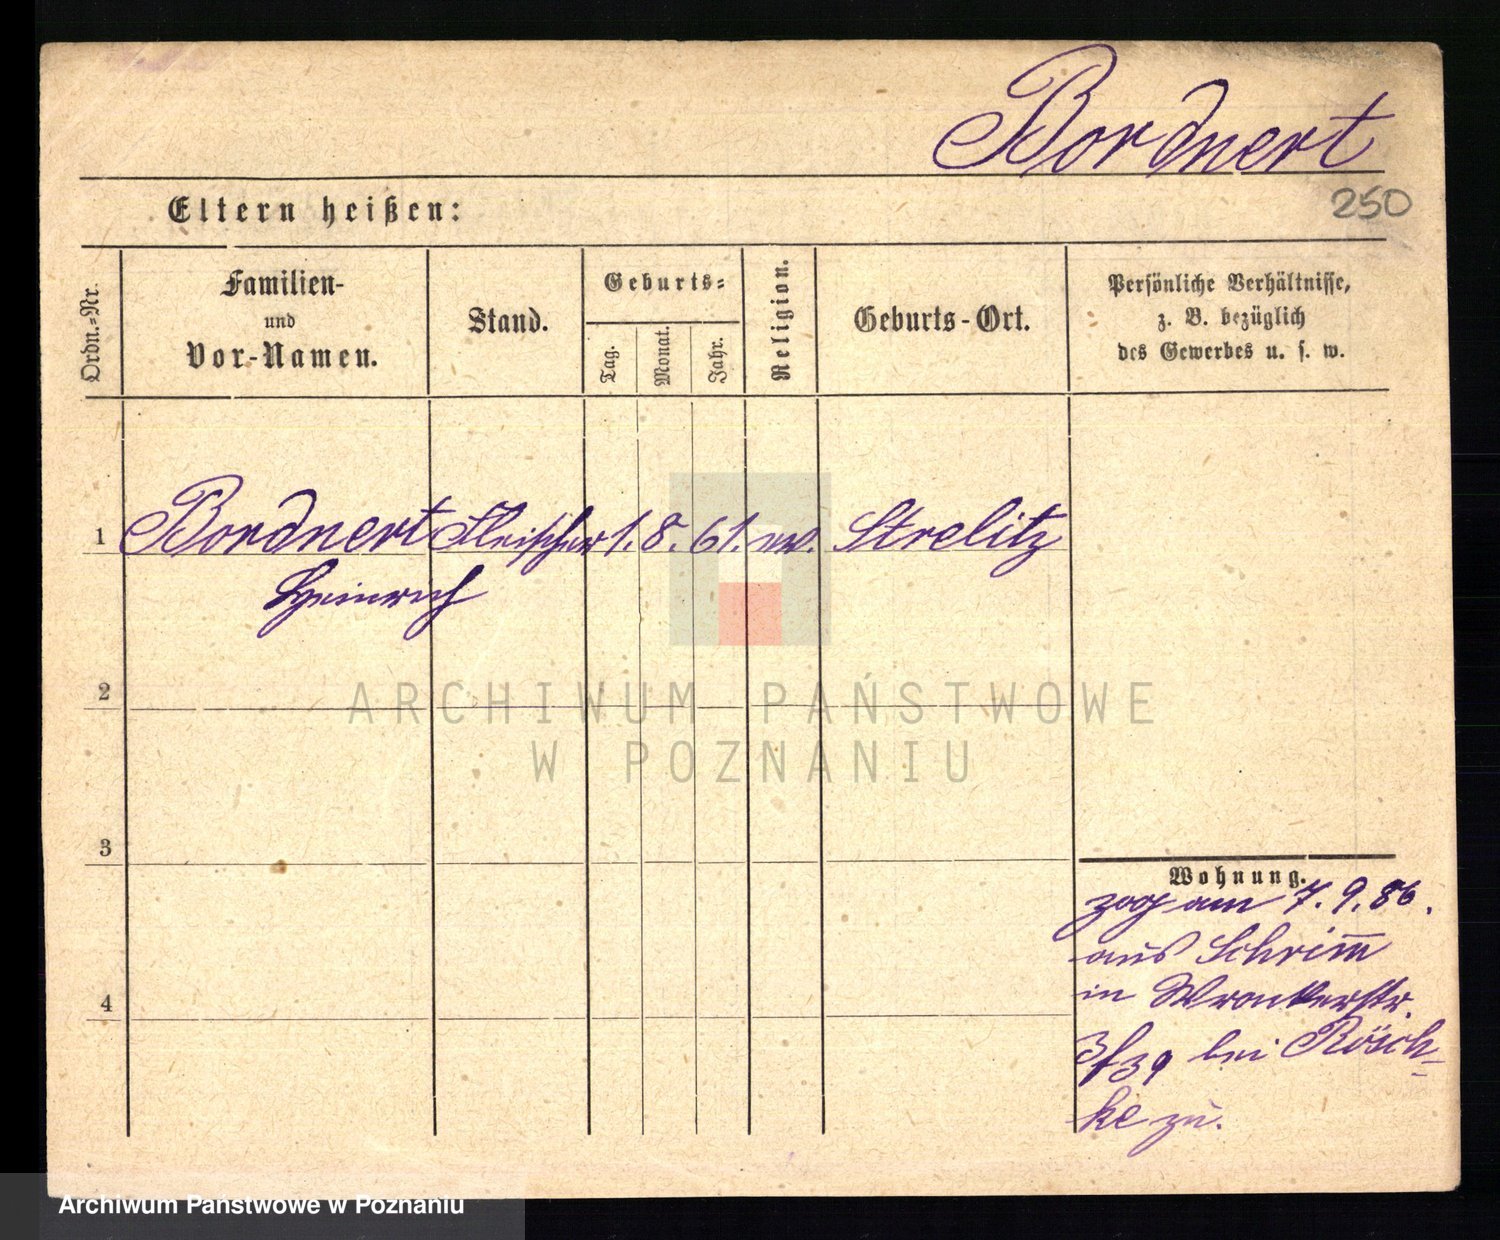 Bordnert
250
Eltern heißen:
Ordn.-Nr.
Familien-
und
Vor-Namen.
Stand.
Geburts-
Tag.
Monat.
Jahr.
Religion.
Geburts-Ort.
Persönliche Verhältnisse,
z. B. bezüglich
des Gewerbes u. s. w.
1 Bordnert Fleischer 1. 8. 61. ev. Strelitz
Heinrich
2
3
4
Wohnung.
zog am 7. 9. 86.
aus Schrim̅
in Wronkerstr.
3/39 bei Rösch-
ke zu.
ARCHIWUM PAŃSTWOWE
W POZNANIU
Archiwum Państwowe w Poznaniu